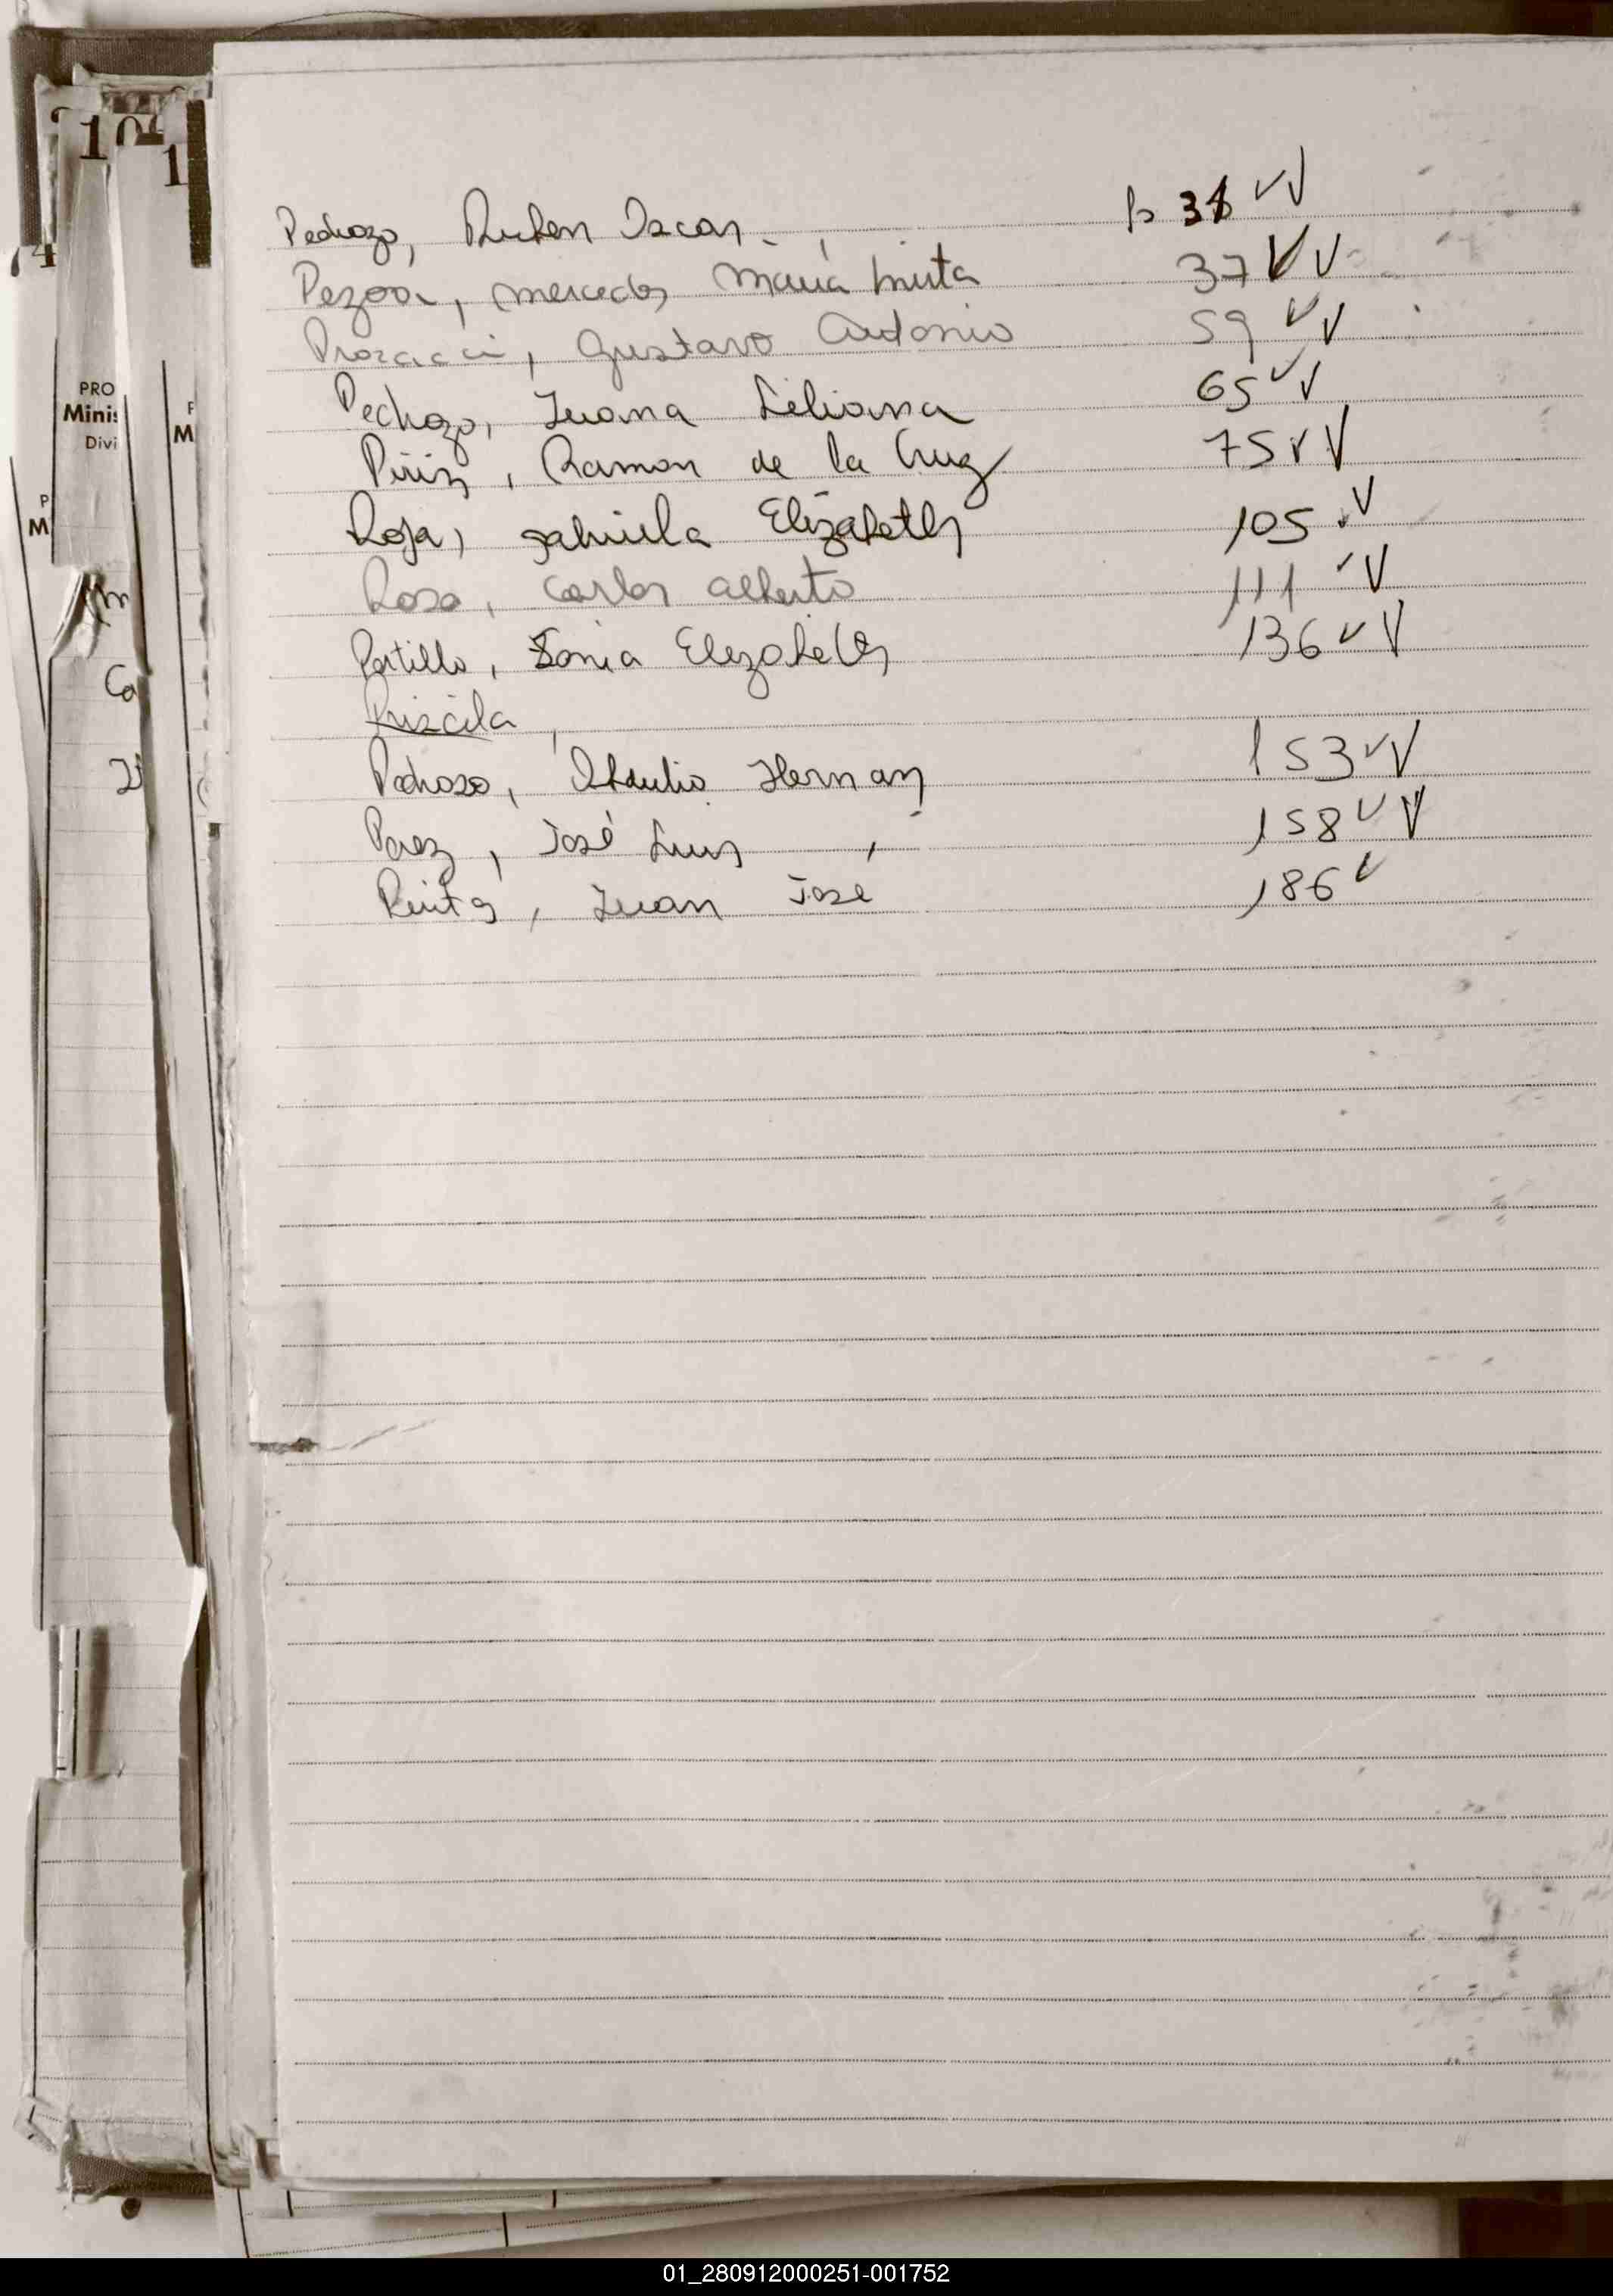 Pedrozo, Ruben Oscar. 38 ✓✓
Pezoa, Mercedes Maria Mirta 37 ✓✓
Gustavo Antonio 59 ✓✓
Pedrozo, Juana Liliana 65 ✓✓
Piriz, Ramon de la Cruz 75 ✓✓
Roja, Gabriela Elizabeth 105 ✓✓
Rosa, Carlos Alberto 111 ✓✓
Portillo, Sonia Elezabeth 136 ✓✓
Priscila,
Pedrozo, Hernan 153 ✓✓
Perez, José Luis 158 ✓✓
Juan José 186 ✓
PRO
Minis
Divi
P
M
P
M
Ca
01_280912000251-001752